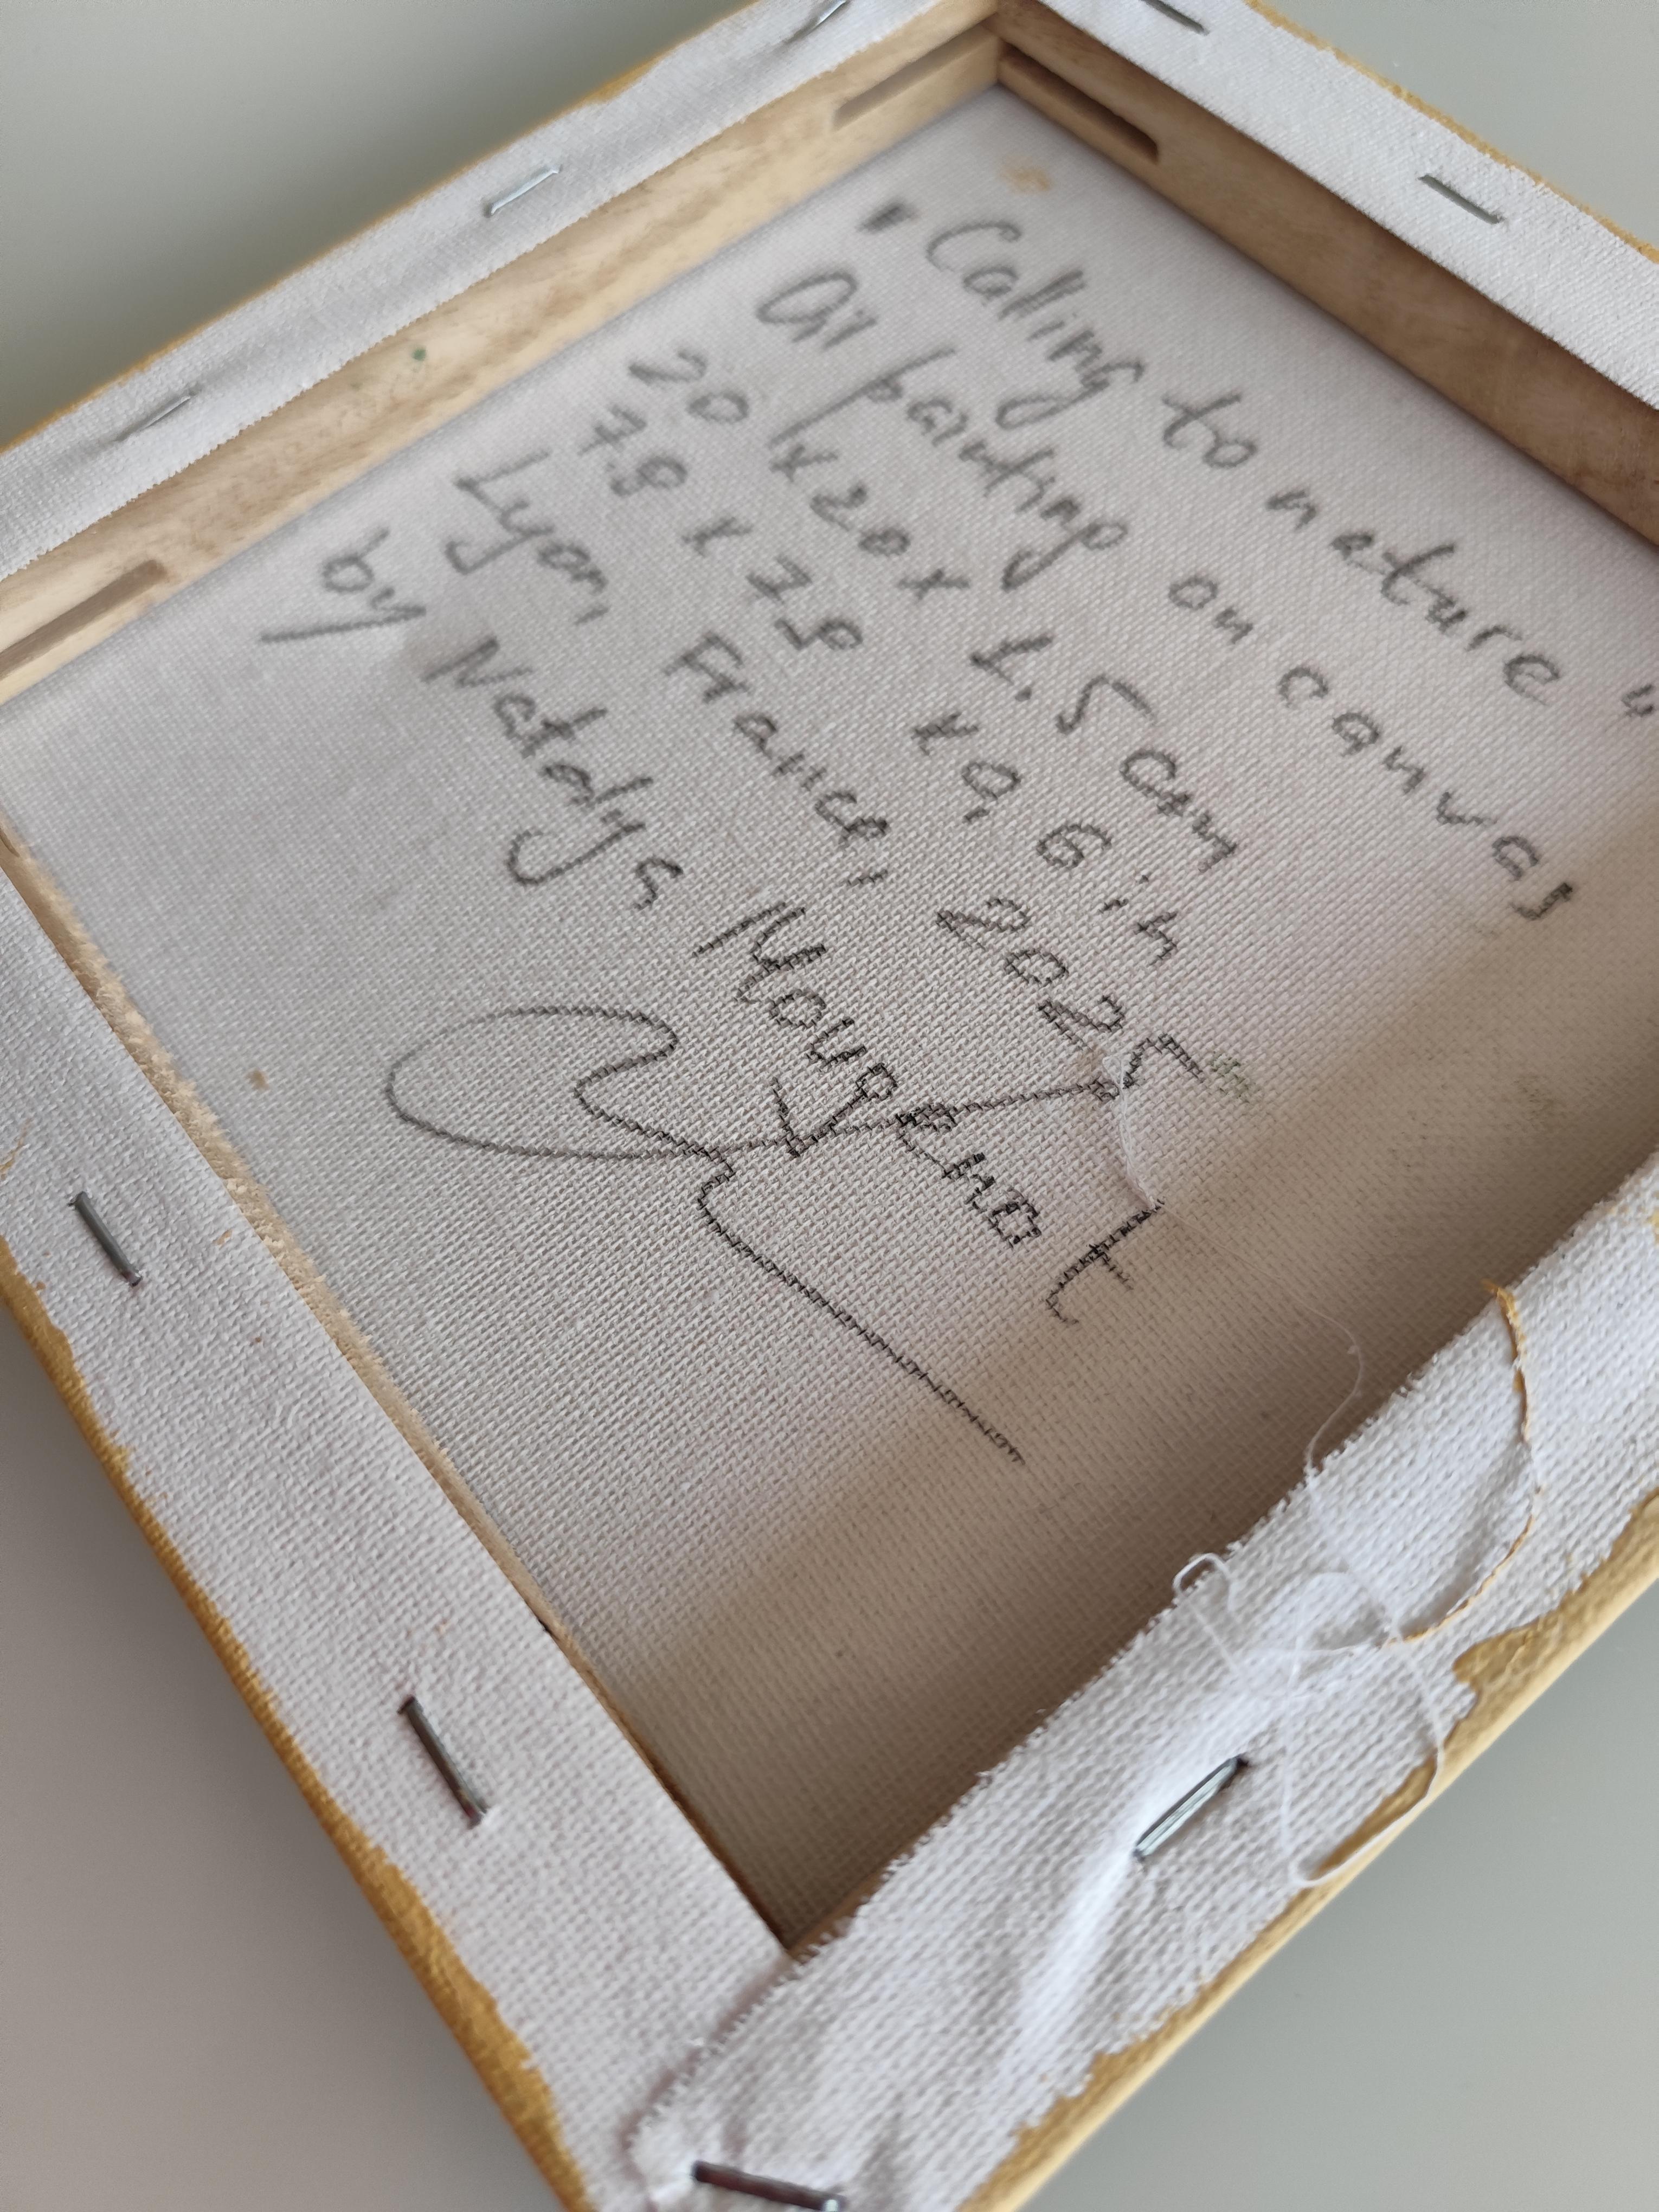 "Calling to nature"
Oil painting on canvas
20 x 20 x 1.5 cm
7.8 x 7.8 x 0,6 in
Lyon, France, 2025
by Natalya Mougenot